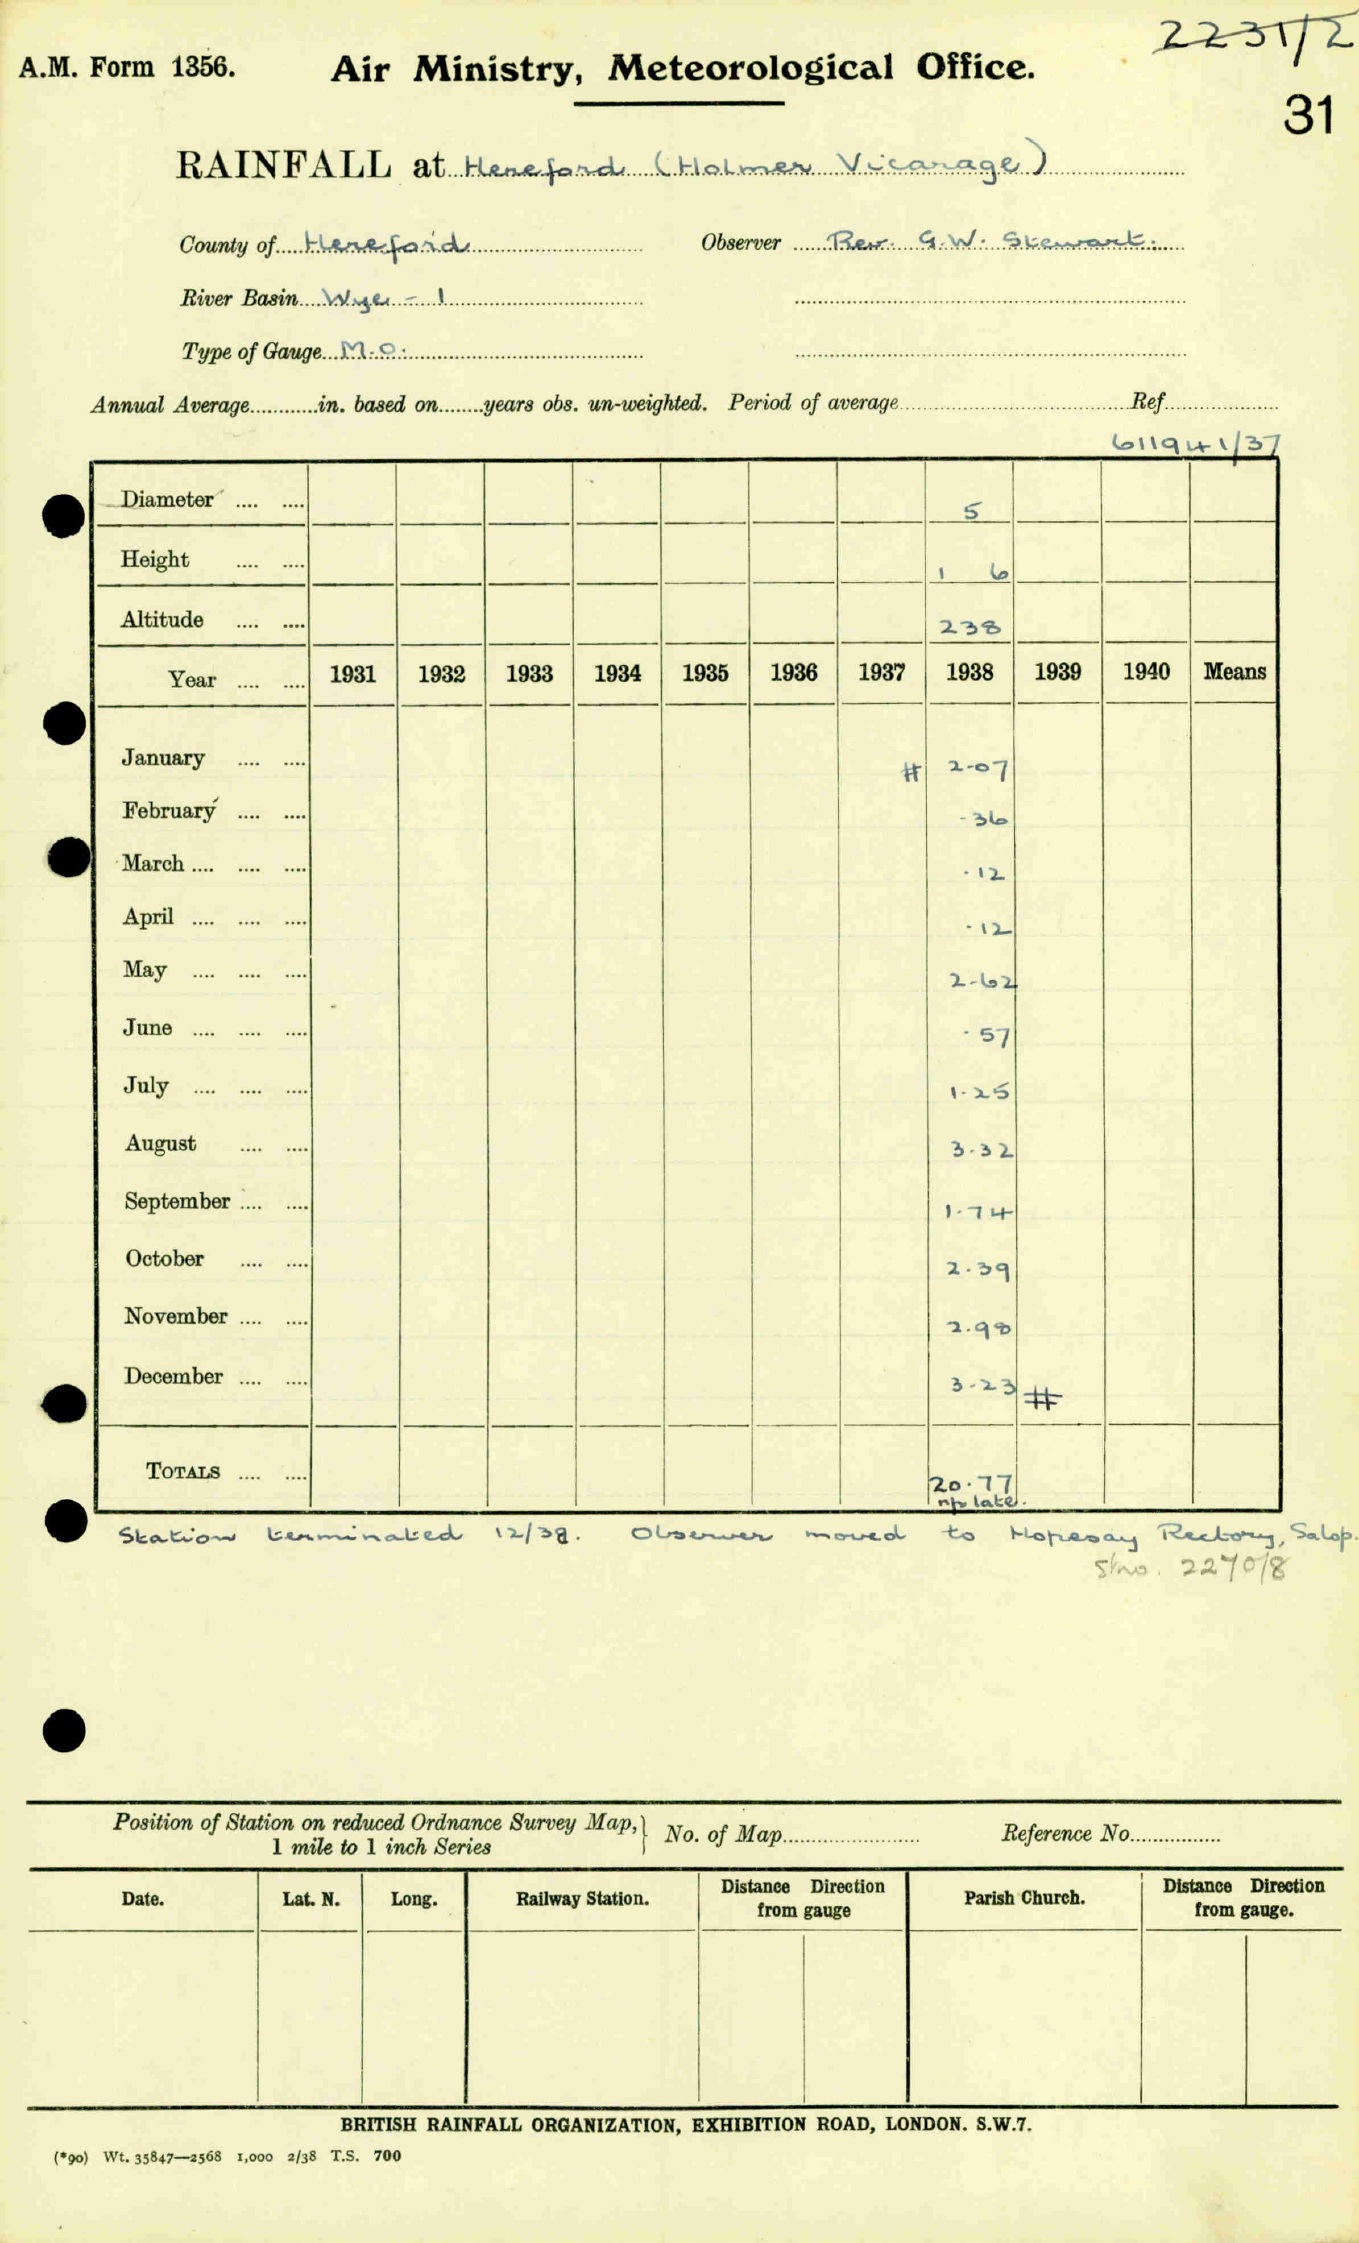 2231/2
A.M. Form 1356. Air Ministry, Meteorological Office.
31
RAINFALL at Hereford (Holmer Vicarage)
County of Hereford Observer Rev. G.W. Stewart.
River Basin Wye - 1
Type of Gauge M.O.
Annual Average............in. based on........years obs. un-weighted. Period of average Ref.
611941/37
Diameter .... .... 5
Height .... .... 1 6
Altitude .... .... 238
Year .... .... 1931 1932 1933 1934 1935 1936 1937 1938 1939 1940 Means
January .... .... # 2.07
February .... .... .36
March .... .... .... .12
April .... .... .... .12
May .... .... .... 2.62
June .... .... .... .57
July .... .... .... 1.25
August .... .... 3.32
September .... .... 1.74
October .... .... 2.39
November .... .... 2.98
December .... .... 3.23 #
TOTALS .... .... 20.77
rp late.
Station terminated 12/38. Observer moved to Hopesay Rectory, Salop.
St no. 2270/8
Position of Station on reduced Ordnance Survey Map, } No. of Map Reference No.
1 mile to 1 inch Series
Date. Lat. N. Long. Railway Station. Distance Direction from gauge Parish Church. Distance Direction from gauge.
BRITISH RAINFALL ORGANIZATION, EXHIBITION ROAD, LONDON. S.W.7.
(*90) Wt. 35847—2568 1,000 2/38 T.S. 700